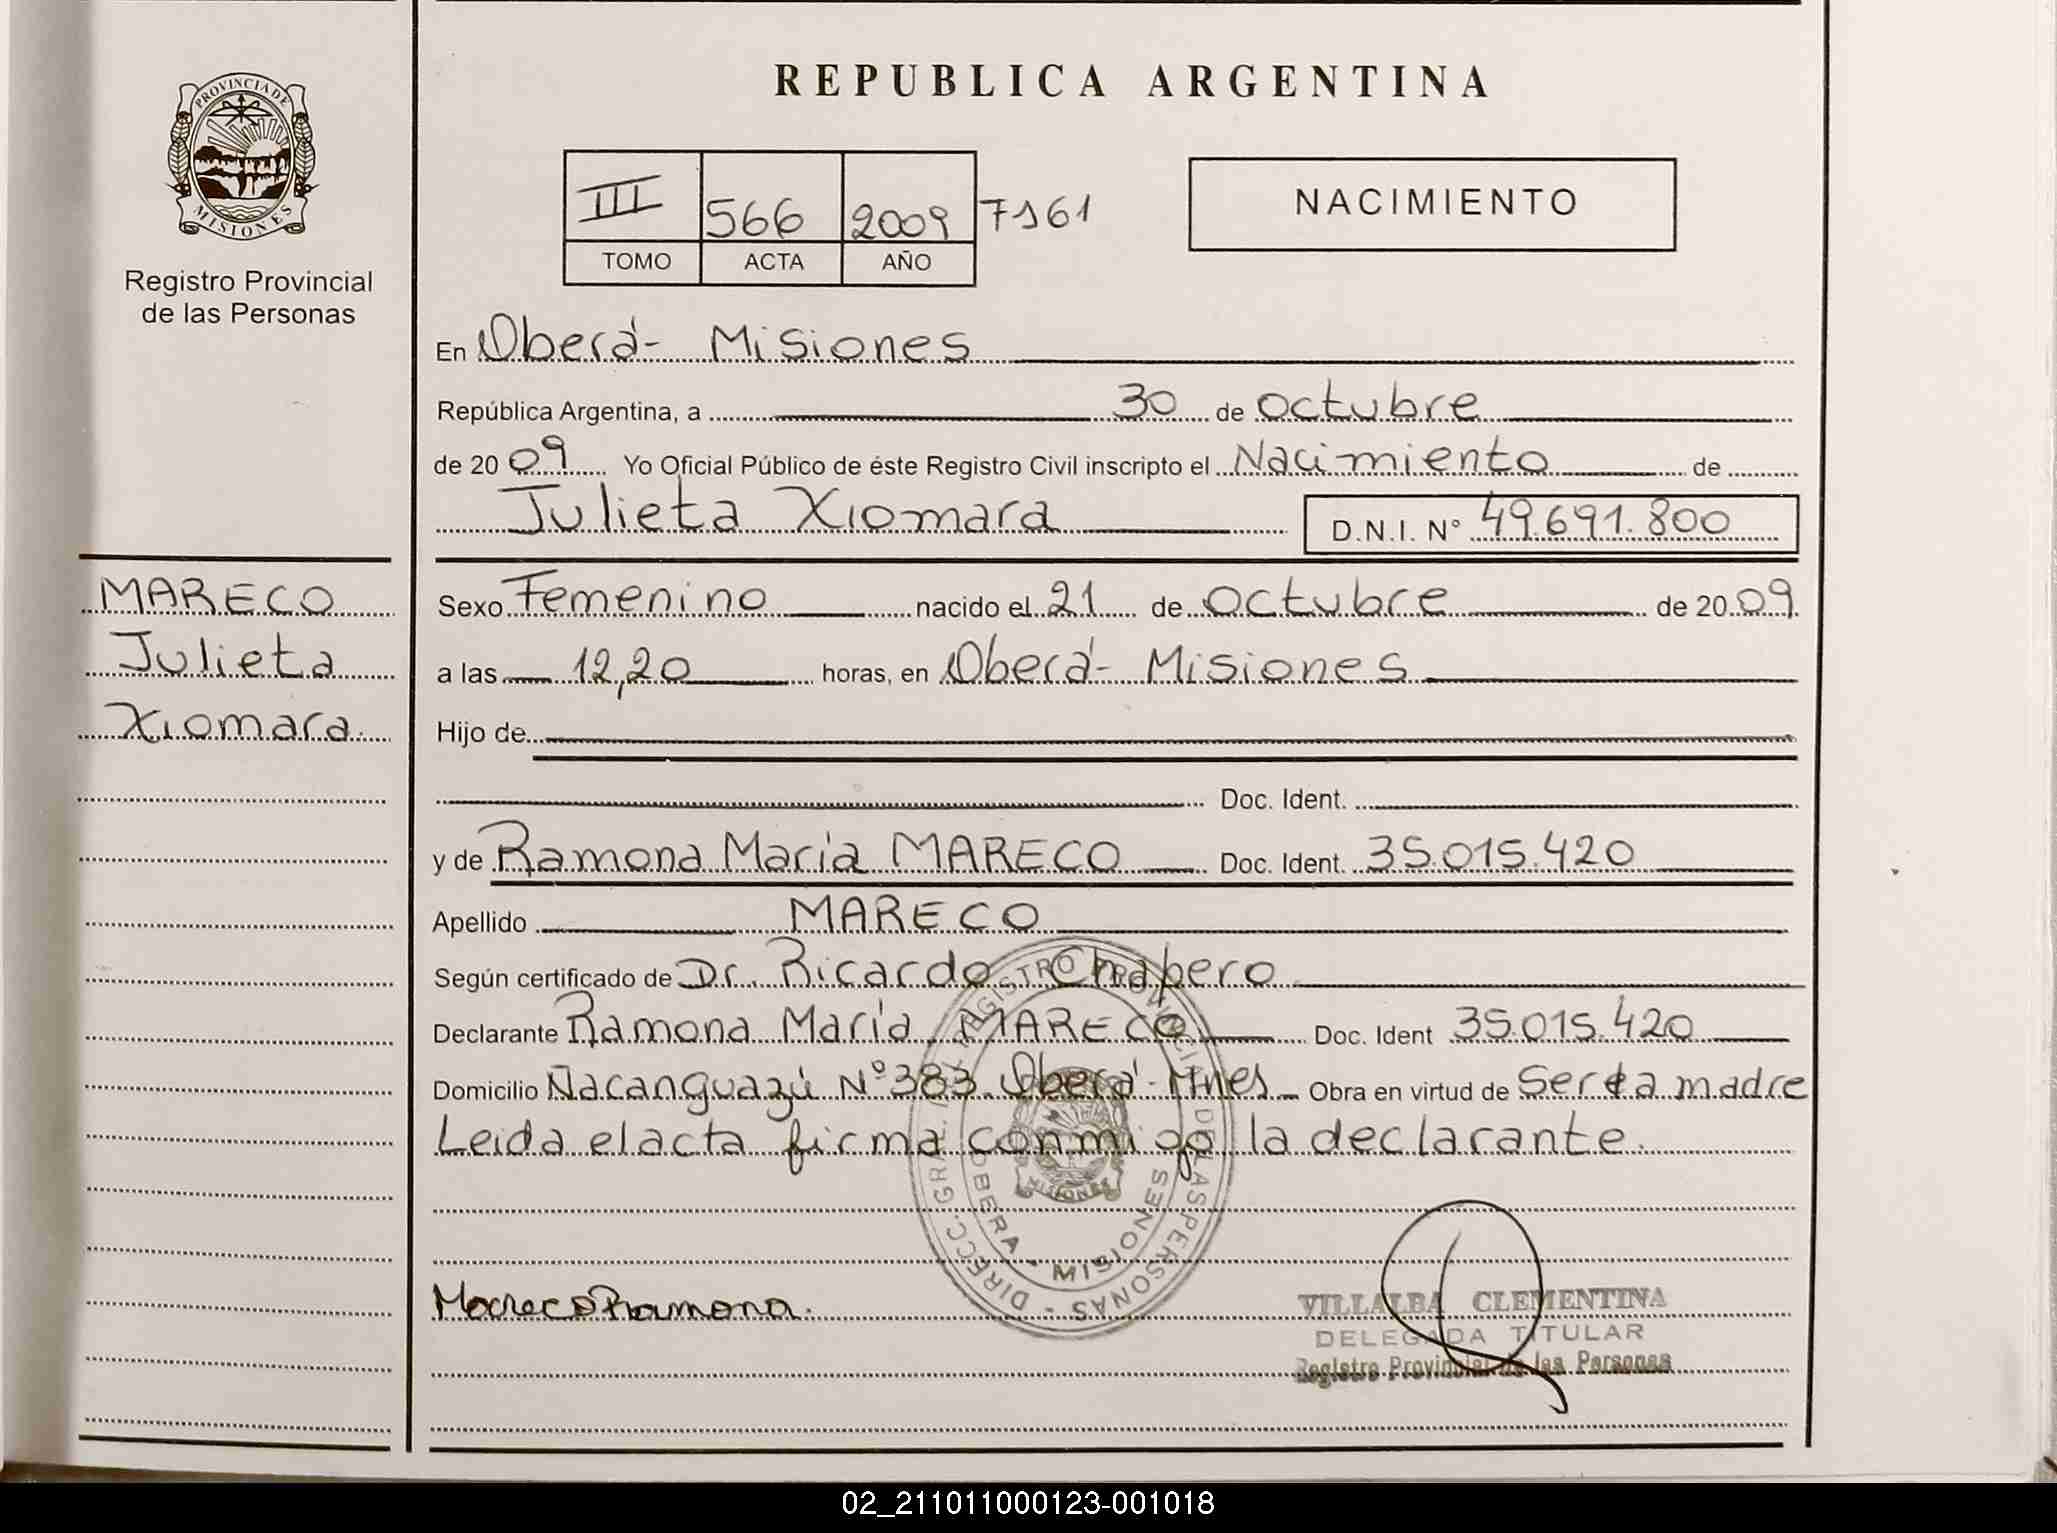 PROVINCIA DE
MISIONES
Registro Provincial
de las Personas
MARECO
Julieta
Xiomara
REPUBLICA ARGENTINA
III 566 2009 7161
TOMO ACTA AÑO
NACIMIENTO
En Oberá - Misiones
República Argentina, a 30 de octubre
de 20 09 Yo Oficial Público de éste Registro Civil inscripto el Nacimiento de
Julieta Xiomara D.N.I. N° 49.691.800
Sexo Femenino nacido el 21 de octubre de 20 09
a las 12,20 horas, en Oberá - Misiones
Hijo de
Doc. Ident.
y de Ramona María MARECO Doc. Ident. 35.015.420
Apellido MARECO
Según certificado de Dr. Ricardo Chapero
Declarante Ramona María MARECO Doc. Ident 35.015.420
Domicilio Ñacanguazú N° 383. Oberá - Mnes Obra en virtud de Ser la madre
Leida el acta firma conmigo la declarante.
DIRECC. GRAL. REGISTRO PROVINCIAL DE LAS PERSONAS -
OBERA - MISIONES
MISIONES
Mareco Ramona.
VILLALBA CLEMENTINA
DELEGADA TITULAR
Registro Provincial de las Personas
02_211011000123-001018